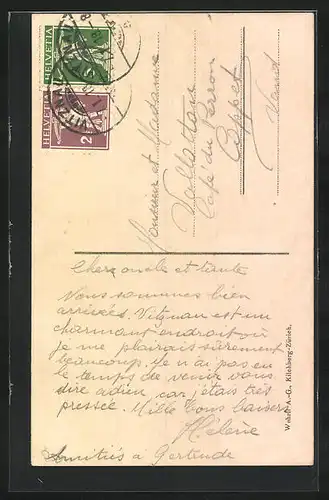 HELVETIA
HELVETIA
Monsieur et Madame
Café du Perron
Coppet
Vaud
Chers oncle et tante
Nous sommes bien
arrivées. Vitznau est un
charmant endroit où
je me plairais sûrement
beaucoup. Je n'ai pas eu
le temps de venir vous
dire adieu, car j'étais très
pressée. Mille bons baisers
Hélène
Amitiés à Gertrude
Wehrli A.-G., Kilchberg-Zürich.